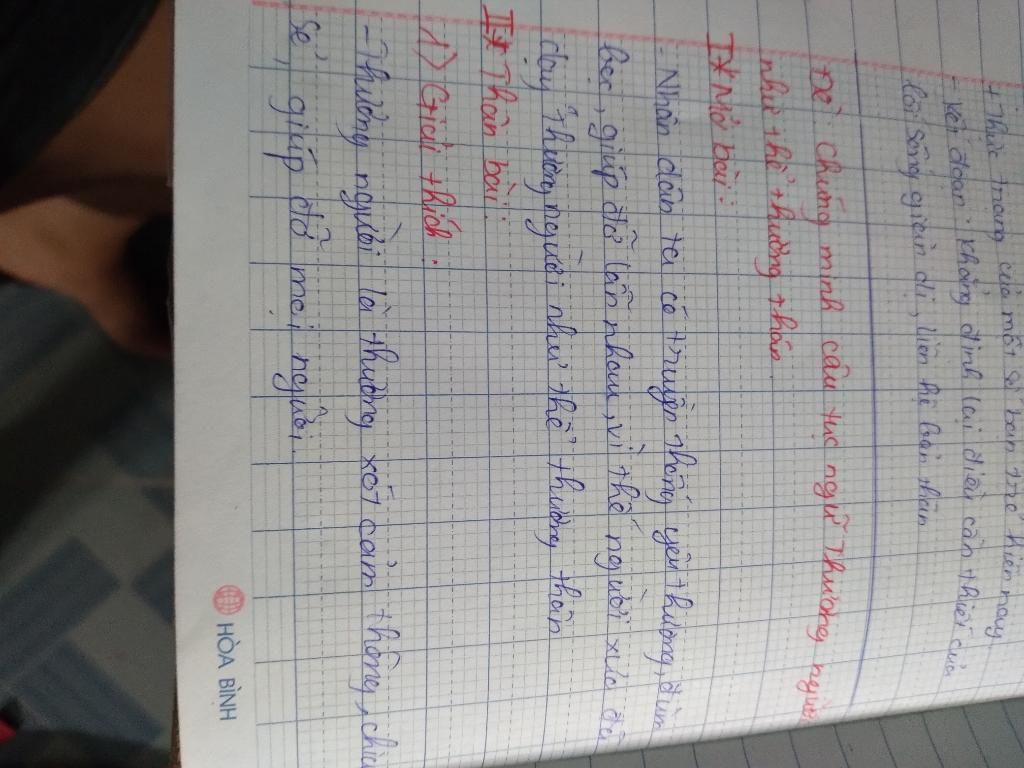 + Thực trạng của một số bạn trẻ hiện nay
- Kết đoạn: khẳng định lại điều cần thiết của
lối sống giản dị, liên hệ bản thân
Đề: chứng minh câu tục ngữ Thương người
như thể thương thân.
I* Mở bài:
- Nhân dân ta có truyền thống yêu thương, đùm
bọc, giúp đỡ lẫn nhau, vì thế người xưa đã
dạy Thương người như thể thương thân
II* Thân bài:
1) Giải thích:
- Thương người là thương xót cảm thông, chia
sẻ, giúp đỡ mọi người.
HÒA BÌNH